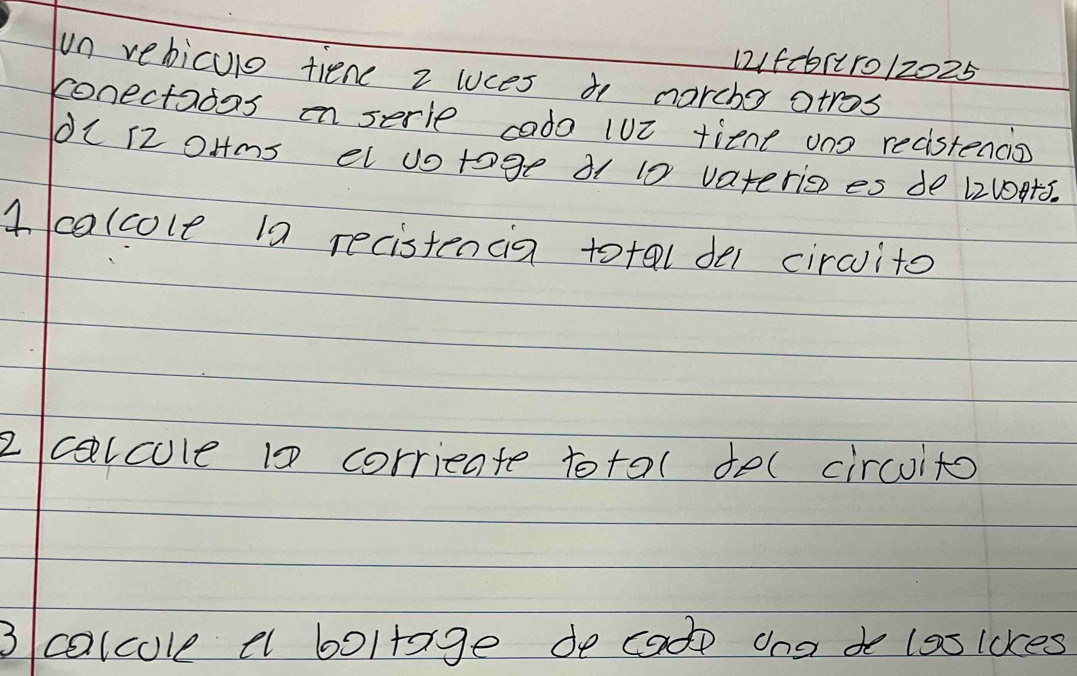 12/febrero/2025
un vebiculo tiene 2 luces de marcha atras
conectadas en serie cada luz tiene una recistencia
de 12 OHms el voltage de la vateria es de 12 volts.
1 calcole la recistencia total del circuito
2 calcule la corriente total del circuito
3 calcole el boltage de cada una de las luces